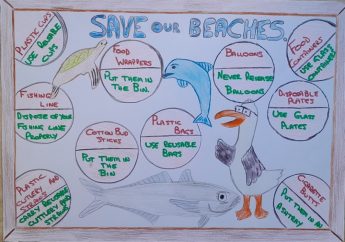 SAVE OUR BEACHES.
PLASTIC CUPS
USE REUSABLE
CUPS
FOOD
WRAPPERS
PUT THEM IN
THE BIN
BALLOONS
NEVER RELEASE
BALLOONS
FOOD
CONTAINERS
USE GLASS
CONTAINERS
FISHING
LINE
DISPOSE OF YOUR
FISHING LINE
PROPERLY
COTTON BUD
STICKS
PUT THEM IN
THE BIN
PLASTIC
BAGS
USE REUSABLE
BAGS
DISPOSABLE
PLATES
USE GLASS
PLATES
PLASTIC
CUTLERY AND
STRAWS
CARRY REUSABLE
CUTLERY AND
STRAWS
CIGARETTE
BUTTS
PUT THEM IN AN
ASHTRAY